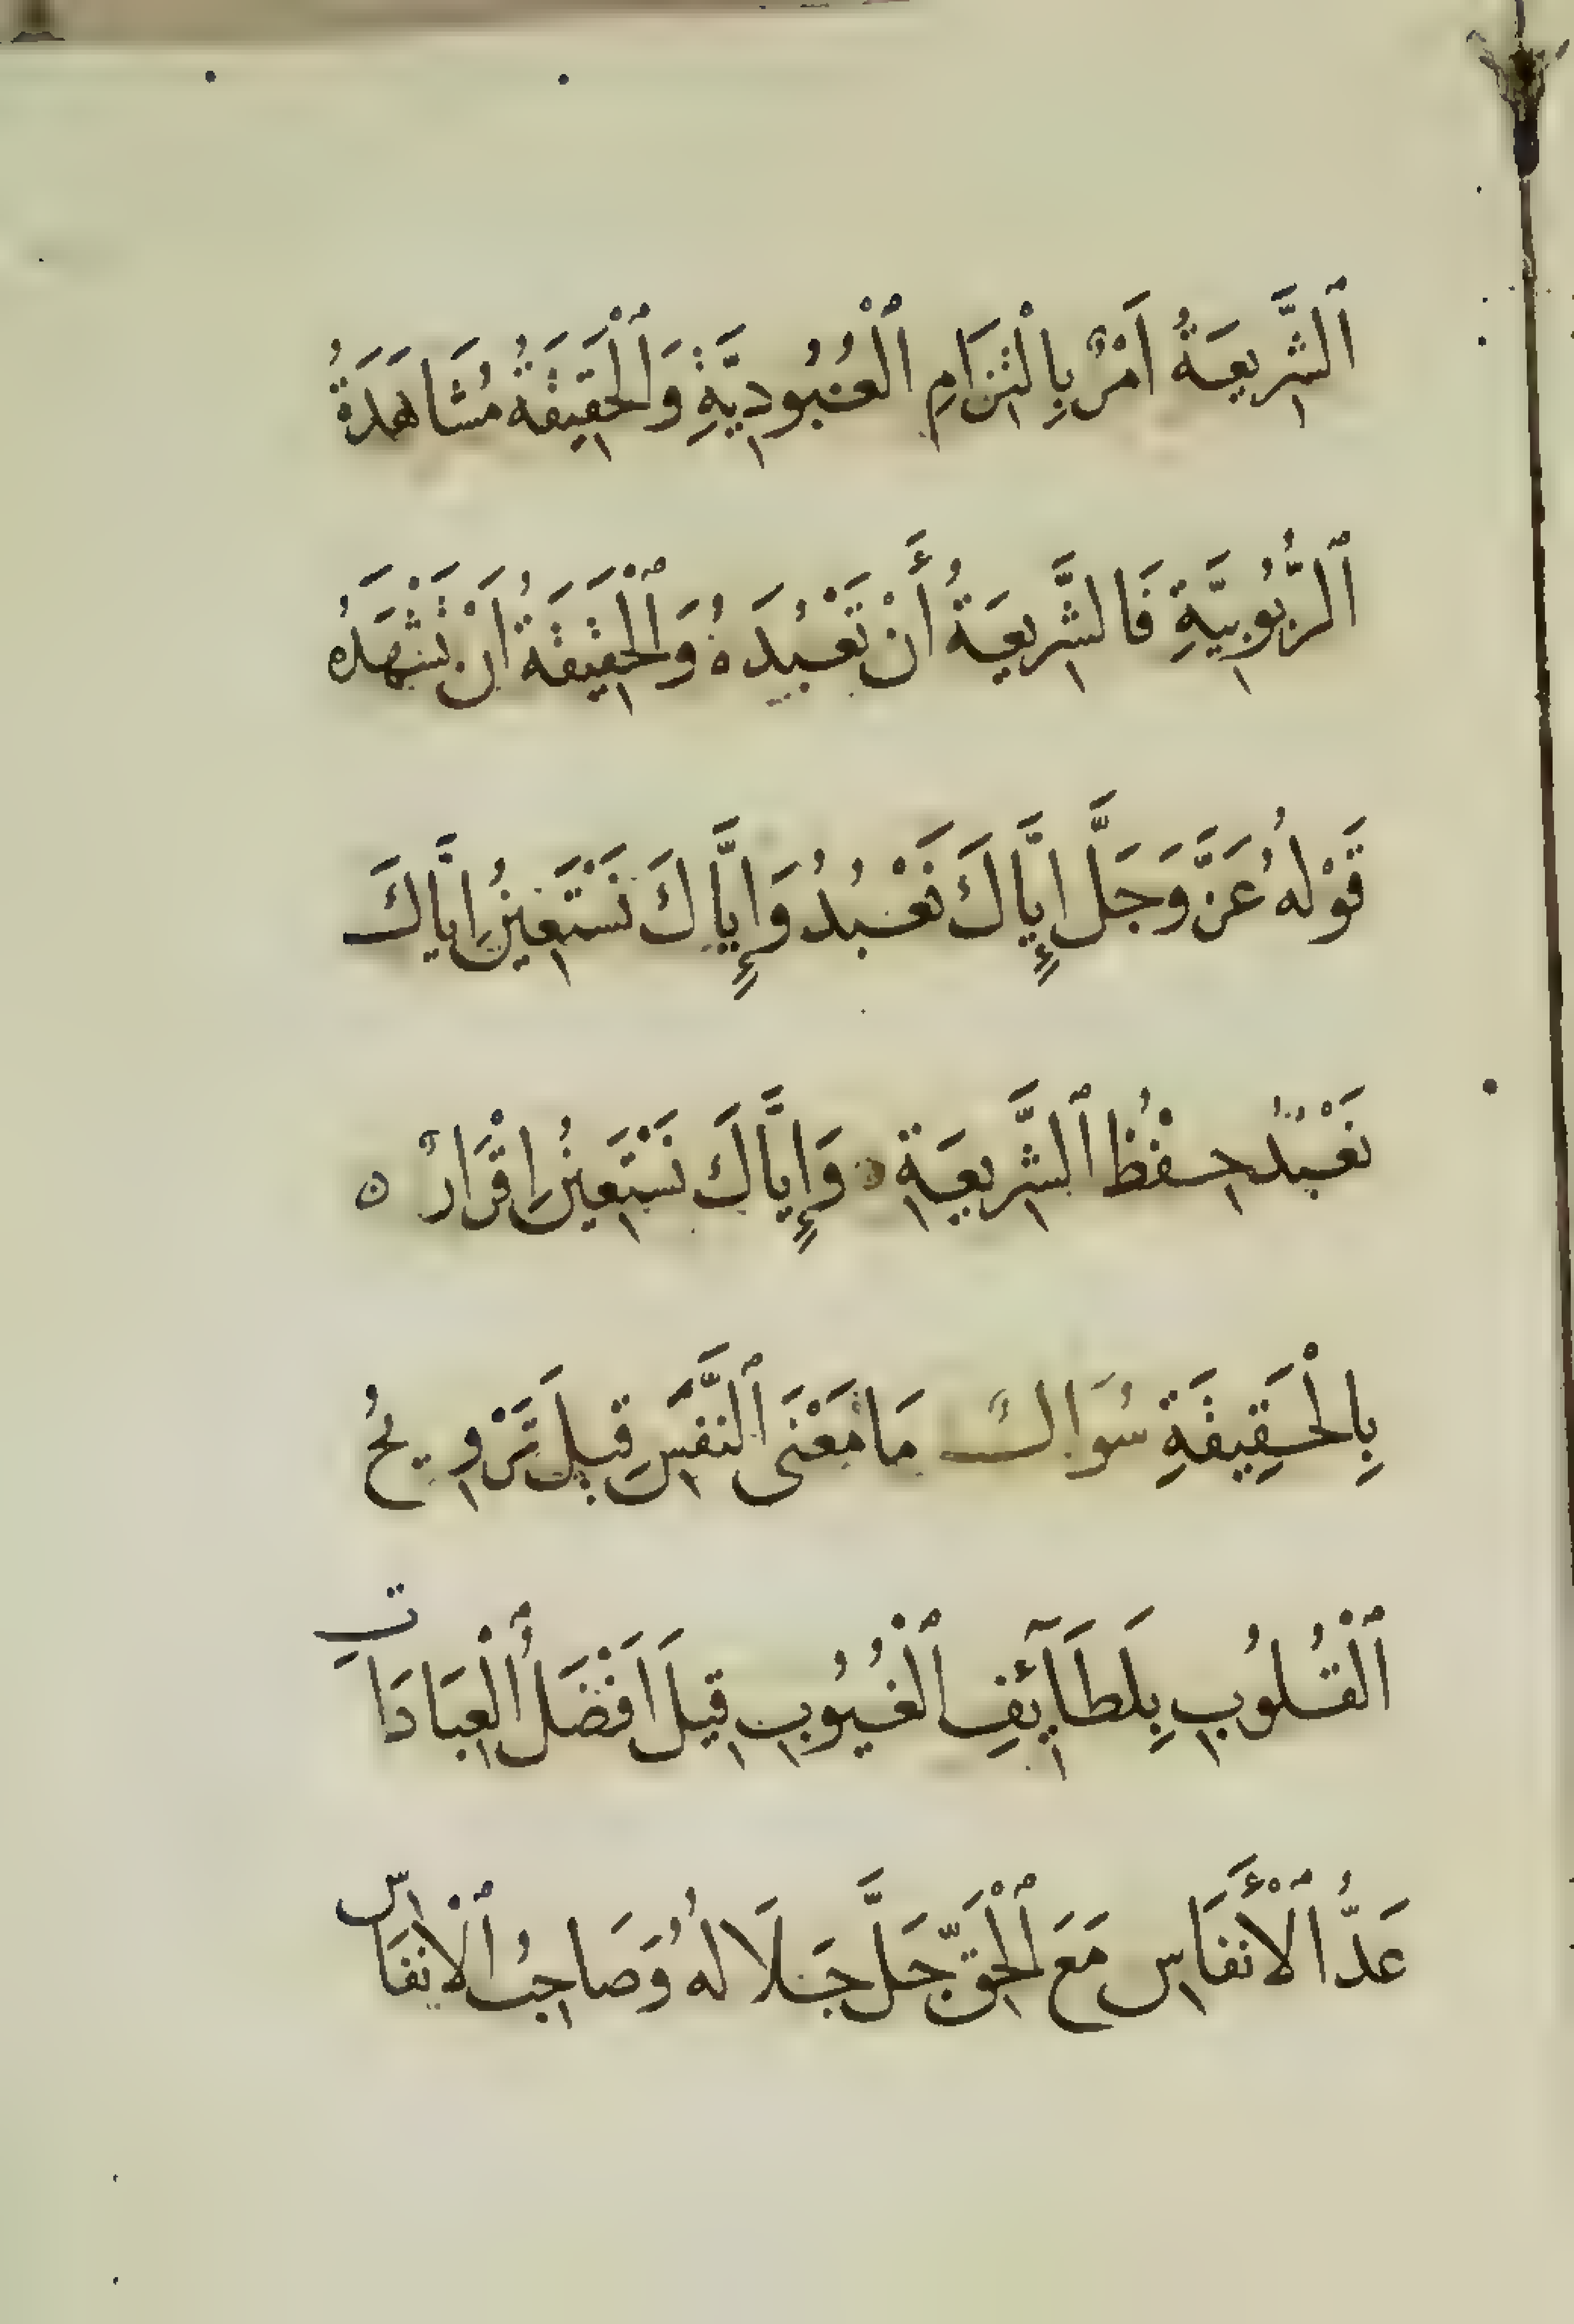 ٱلشَّرِيعَةُ اَمْرٌ بِالْتِزَامِ ٱلْعُبُودِيَّةِ وَٱلْحَقِيقَةُ مُشَاهَدَةُ
ٱلرُّبُوبِيَّةِ فَالشَّرِيعَةُ أَنْ تَعْبُدَهُ وَٱلْحَقِيقَةُ اَنْ تَشْهَدَهُ
قَوْلُهُ عَزَّ وَجَلَّ إِيَّاكَ نَعْبُدُ وَإِيَّاكَ نَسْتَعِينُ اِيَّاكَ
نَعْبُدُ حِفْظُ ٱلشَّرِيعَةِ وَإِيَّاكَ نَسْتَعِينُ اِقْرَارٌ ه
بِالْحَقِيقَةِ سُوَالٌ مَا مَعْنَى ٱلنَّفَسِ قِيلَ تَرْوِيحُ
ٱلْقُلُوبِ بِلَطَآئِفِ ٱلْغُيُوبِ قِيلَ اَفْضَلُ ٱلْعِبَادَاتِ
عَدُّ ٱلْأَنْفَاسِ مَعَ ٱلْحَقِّ جَلَّ جَلَالُهُ وَصَاحِبُ ٱلْاَنْفَاسِ